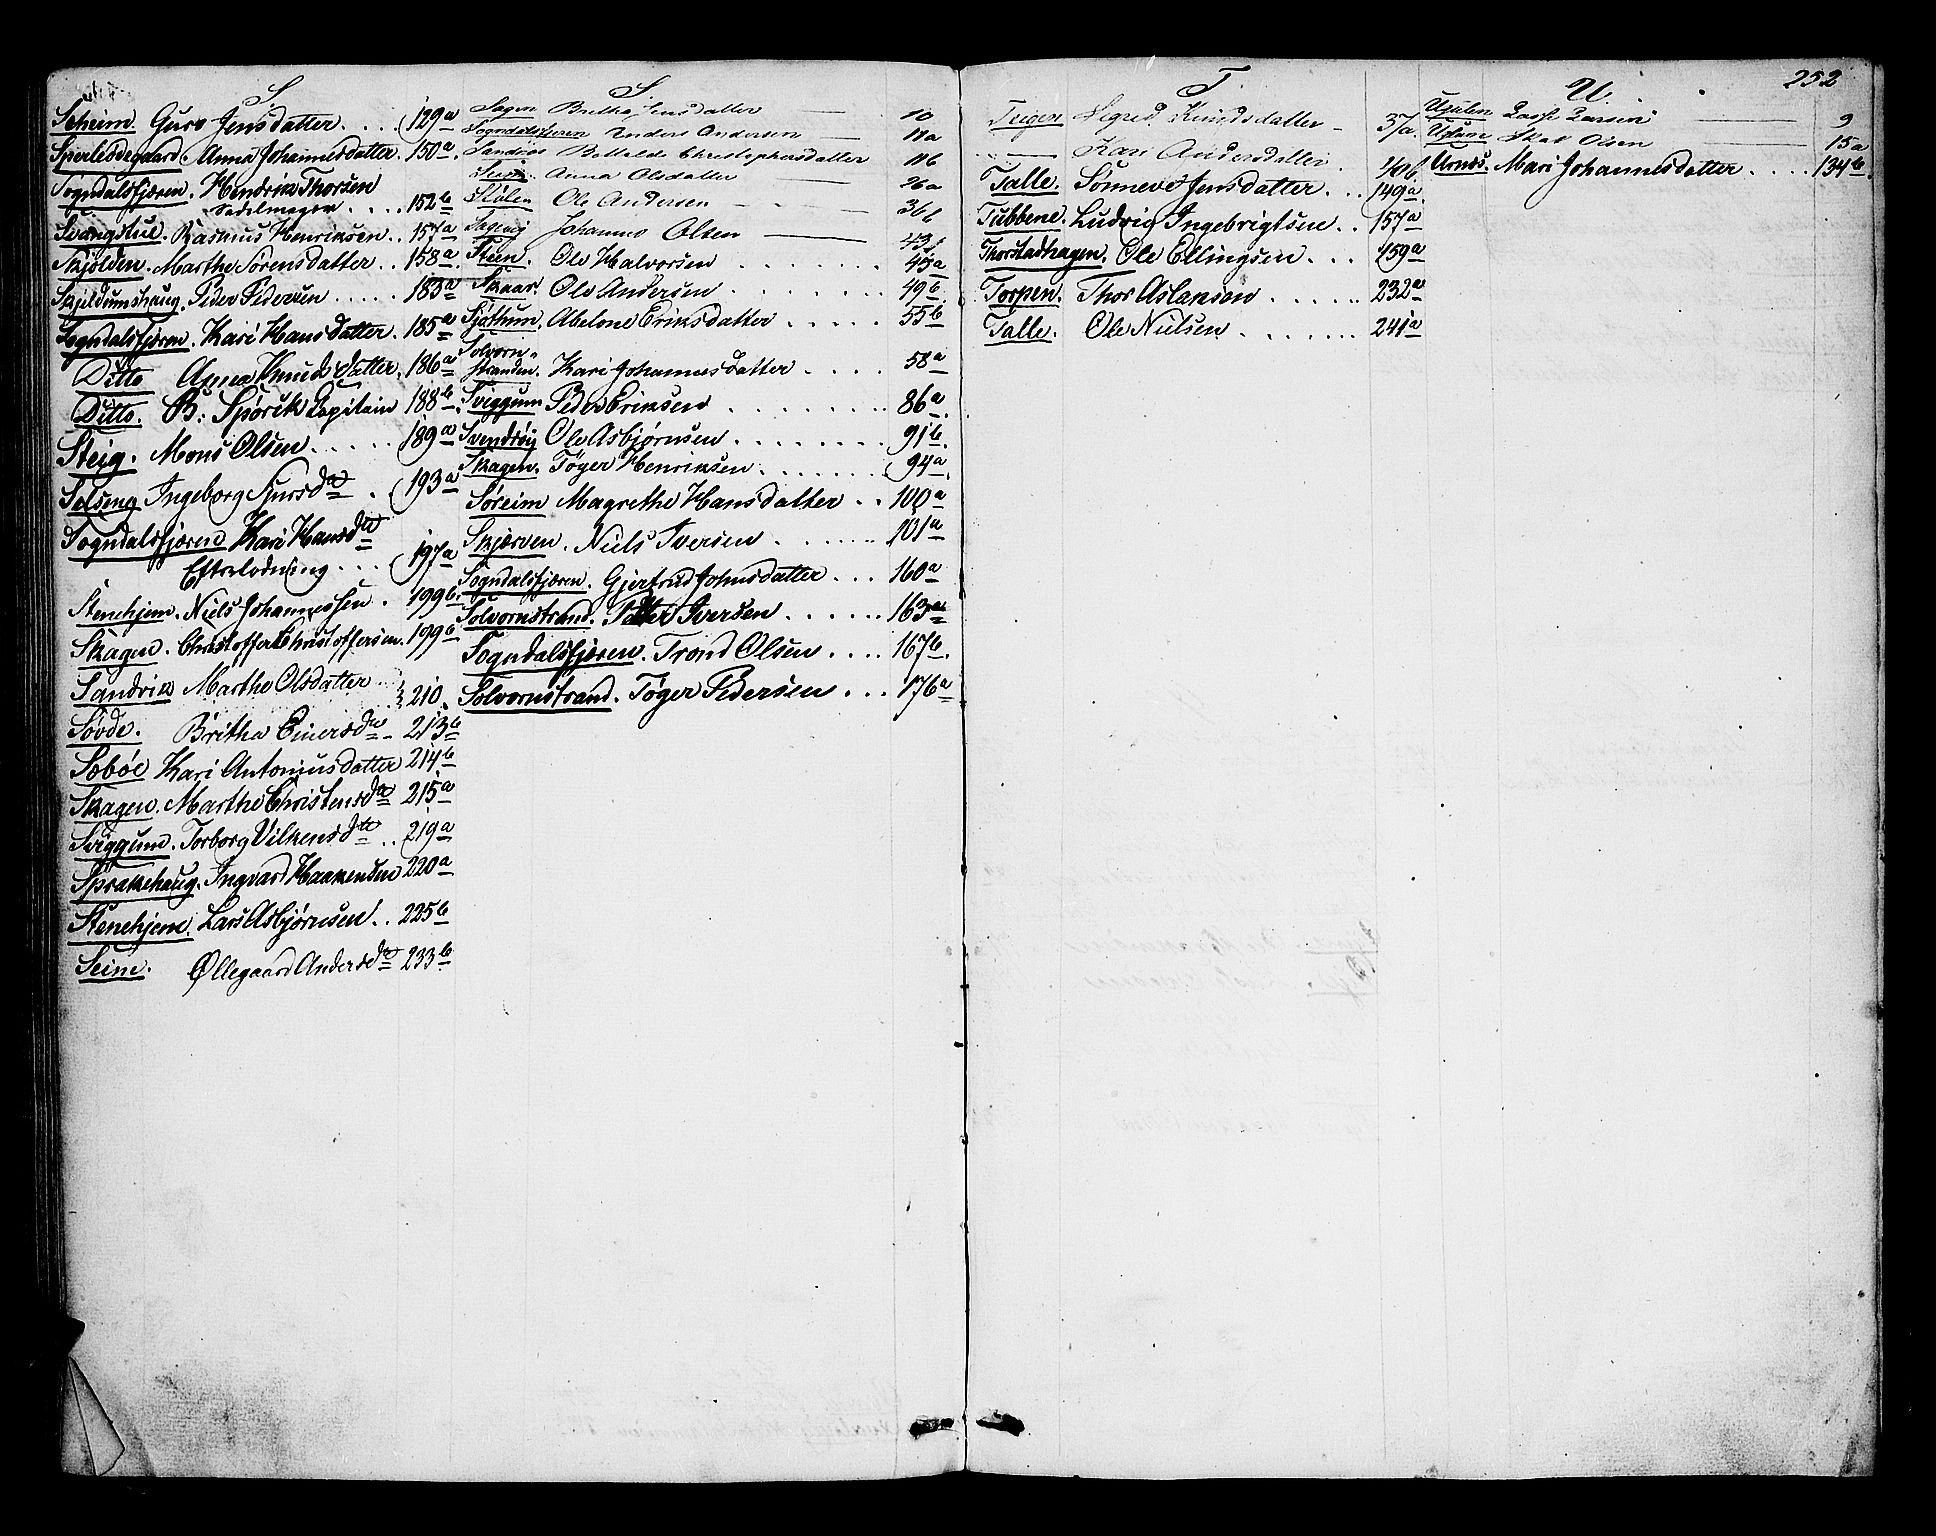 S.
Seheim. Guro Jensdatter. . . . . 129a
Sperlesdegaard. Anna Johannesdatter. 150a.
Sogndalsfjæren. Hendrik Thorsen
Sadelmager . . . . 152b
Svangstul. Rasmus Henriksen . . 157a
Skjolden. Marthe Sørensdatter . . 158a.
Skjeldumshaug. Peder Pedersen . . . . . 183a
Sogndalsfjæren. Kari Hansdatter. 185a
Ditto Anna Knudsdatter. 186a
Ditto. B: Spörck Capitain 188b.
Steig. Mons Olsen . . . . . 189a
Selseng Ingeborg Sjursdtr . 193a
Sogndalsfjæren Kari Hansdtr
Efterlodning . . . 197a
Stenehjem. Niels Johannessen . 199b.
Skagen. Christoffer Christoffersen. 199b
Sandvik Marthe Olsdatter
210.
Søvde. Britha Einersdtr - 213b
Sobøe Kari Antoniusdatter 214b
Skagen. Marthe Christensdtr 215a
Sviggum. Torborg Vilkensdtr . . 219a
Sprakehaug. Ingvard Haakensen 220a
Stenehjem. Lars Asbjørnsen . . 225b
Seim. Øllegaard Andersdtr 233b
S.
Sagen Britha Jensdatter 10
Sogndalsfjæren Anders Andersen 11a
Bothilde Christophersdatter 11b
Seim Anna Olsdatter 26a
Stølen Ole Andersen 36b
Johannes Olsen 43
Steen. Ole Halvorsen . . . . . . 45a
Skaar. Ole Andersen . . . . . . 49b
Sjøthun. Abelone Eriksdatter . . . . . 55b
Solvorn-
stranden. Kari Johannesdatter . . . . 58a
Sviggum Peder Eriksen . . . . . . . 86a.
Svendrøy Ole Asbjørnsen . . . . . . . 91b.
Skagen. Tøger Henriksen . . . . . . 94a.
Søreim Magrethe Hansdatter . . 100a
Skjærven. Niels Iversen . . . . . . 101a
Sogndalsfjæren. Gjertrud Johnsdatter . . . 160a
Solvornstrand. Peder Iversen . . . . . . 163a
Sogndalsfjæren. Trond Olsen . . . . 167b.
Solvornstrand. Tøger Pedersen . . . 176a
T.
Teigen Sigrid Knudsdatter - 37a.
Kari Andersdatter 40b
Talle. Sønneve Jensdatter . . . 149a
Tubbene. Ludvig Ingebrigtsen . . 157a
Thorstadhagen. Ole Ellingsen . . . 459a
Torpen. Thor Aslaksen . . . . . . . 232a
Talle. Ole Nielsen . . . . . . . . 241a
252
U.
Ugulen Lasse Larsen 9
Olsen 15a
Urnæs. Mari Johannesdatter . . . . 134b.